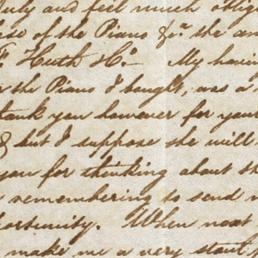 July and feel much oblig
ase of the Piano &c. the an
F. Huth & Co. My havin
r the Piano I bought, was a
thank you however for your
& but I suppose she will
you for thinking about th
remembering to send
portunity. When next
make me a very stout